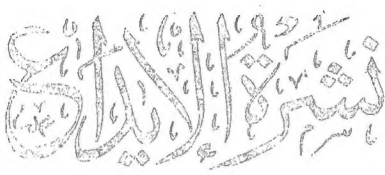 نشرة الإيداع